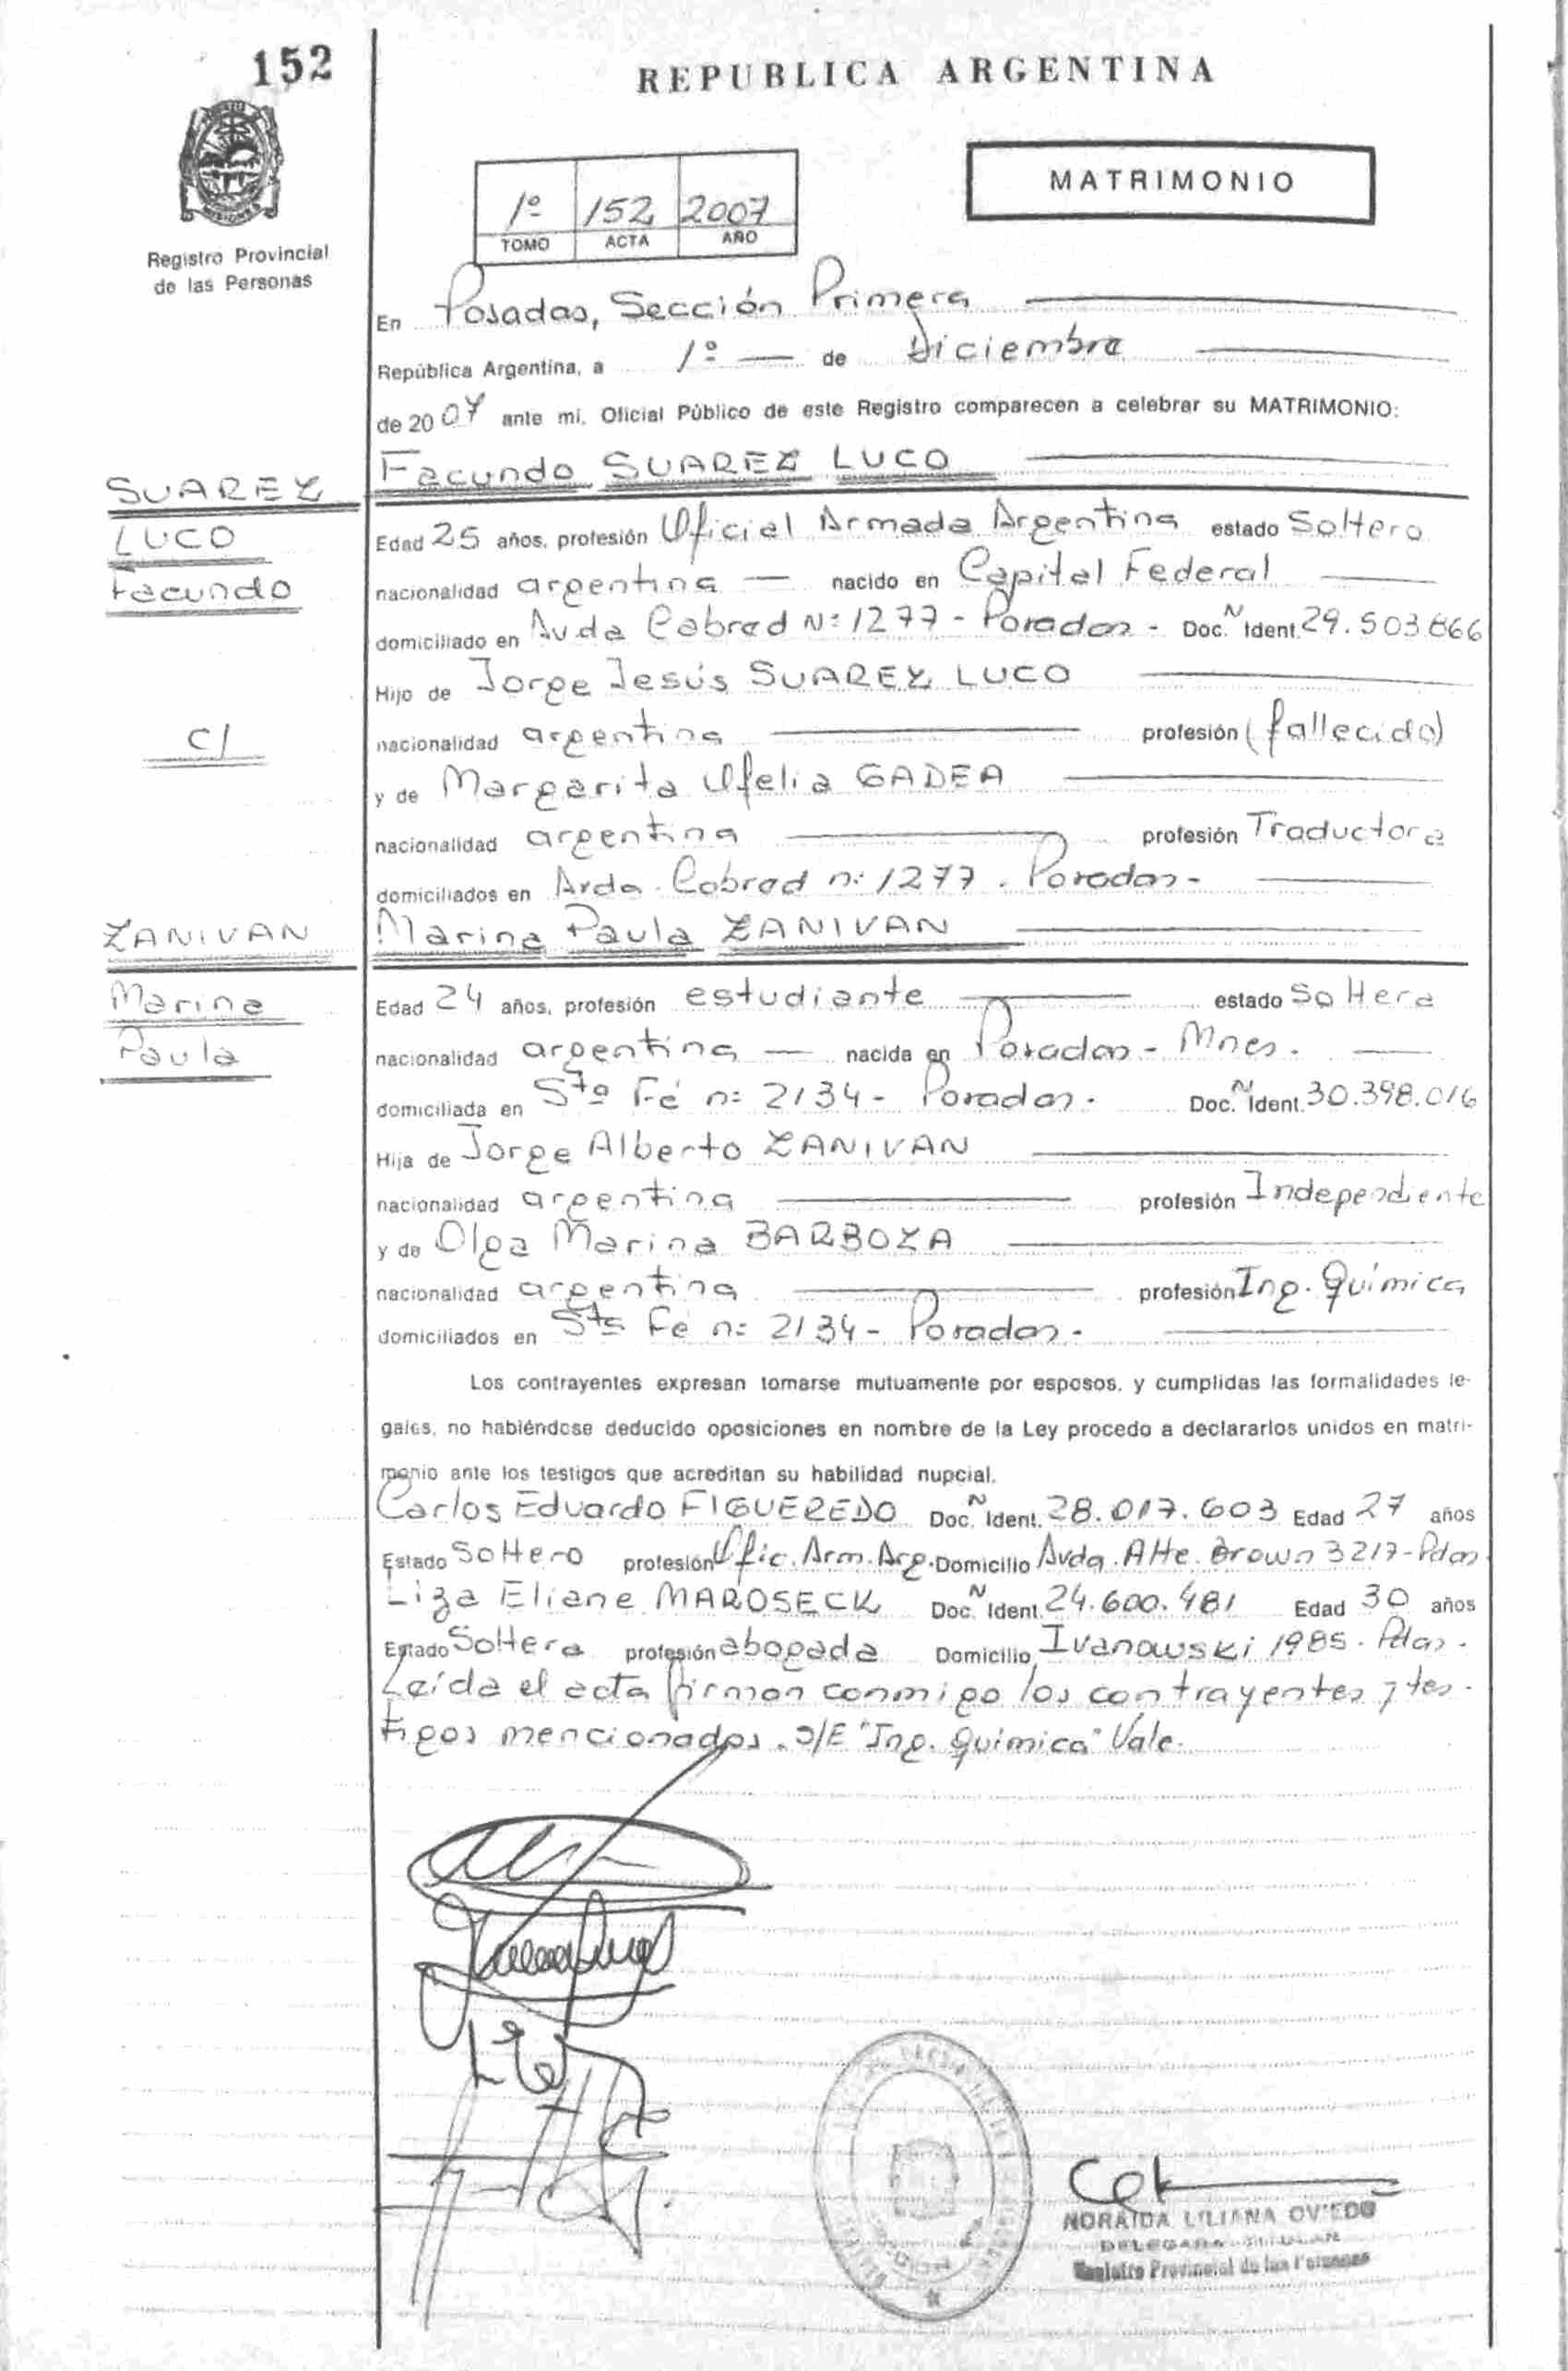 152
REPUBLICA ARGENTINA
MATRIMONIO
1º 152 2007
TOMO ACTA AÑO
Registro Provincial
de las Personas
En Posadas, Sección Primera
República Argentina, a 1º de Diciembre
de 2007 ante mi, Oficial Público de este Registro comparecen a celebrar su MATRIMONIO:
Facundo SUAREZ LUCO
SUAREZ
LUCO
Facundo
Edad 25 años, profesión Oficial Armada Argentina estado Soltero
nacionalidad argentina nacido en Capital Federal
domiciliado en Avda Cabred Nº 1277 - Posadas - Doc. Ñ Ident. 29.503.866
Hijo de Jorge Jesús SUAREZ LUCO
C/
nacionalidad argentina profesión (fallecido)
y de Margarita Ofelia GADEA
nacionalidad argentina profesión Traductora
domiciliados en Avda. Cabred nº 1277 . Posadas -
ZANIVAN
Marina Paula ZANIVAN
Marina
Paula
Edad 24 años, profesión estudiante estado Soltera
nacionalidad argentina nacida en Posadas - Mnes.
domiciliada en Sta Fé nº 2134 - Posadas. Doc. Ñ Ident. 30.398.016
Hija de Jorge Alberto ZANIVAN
nacionalidad argentina profesión Independiente
y de Olga Marina BARBOZA
nacionalidad argentina profesión Ing. Química
domiciliados en Sta Fe nº 2134 - Posadas.
Los contrayentes expresan tomarse mutuamente por esposos, y cumplidas las formalidades le-
gales, no habiéndose deducido oposiciones en nombre de la Ley procedo a declararlos unidos en matri-
monio ante los testigos que acreditan su habilidad nupcial.
Carlos Eduardo FIGUEREDO Doc. Ñ Ident. 28.017.603 Edad 27 años
Estado Soltero profesión Ofic. Arm. Arg. Domicilio Avda. Alte. Brown 3217 - Pdas
Liza Eliane MAROSECK Doc. Ñ Ident. 24.600.481 Edad 30 años
Estado Soltera profesión abogada Domicilio Ivanowski 1985 . Pdas.
Leída el acta firman conmigo los contrayentes y tes-
tigos mencionados. S/E "Ing. Química" Vale.
NORAIDA LILIANA OVIEDO
DELEGADA TITULAR
Registro Provincial de las Personas